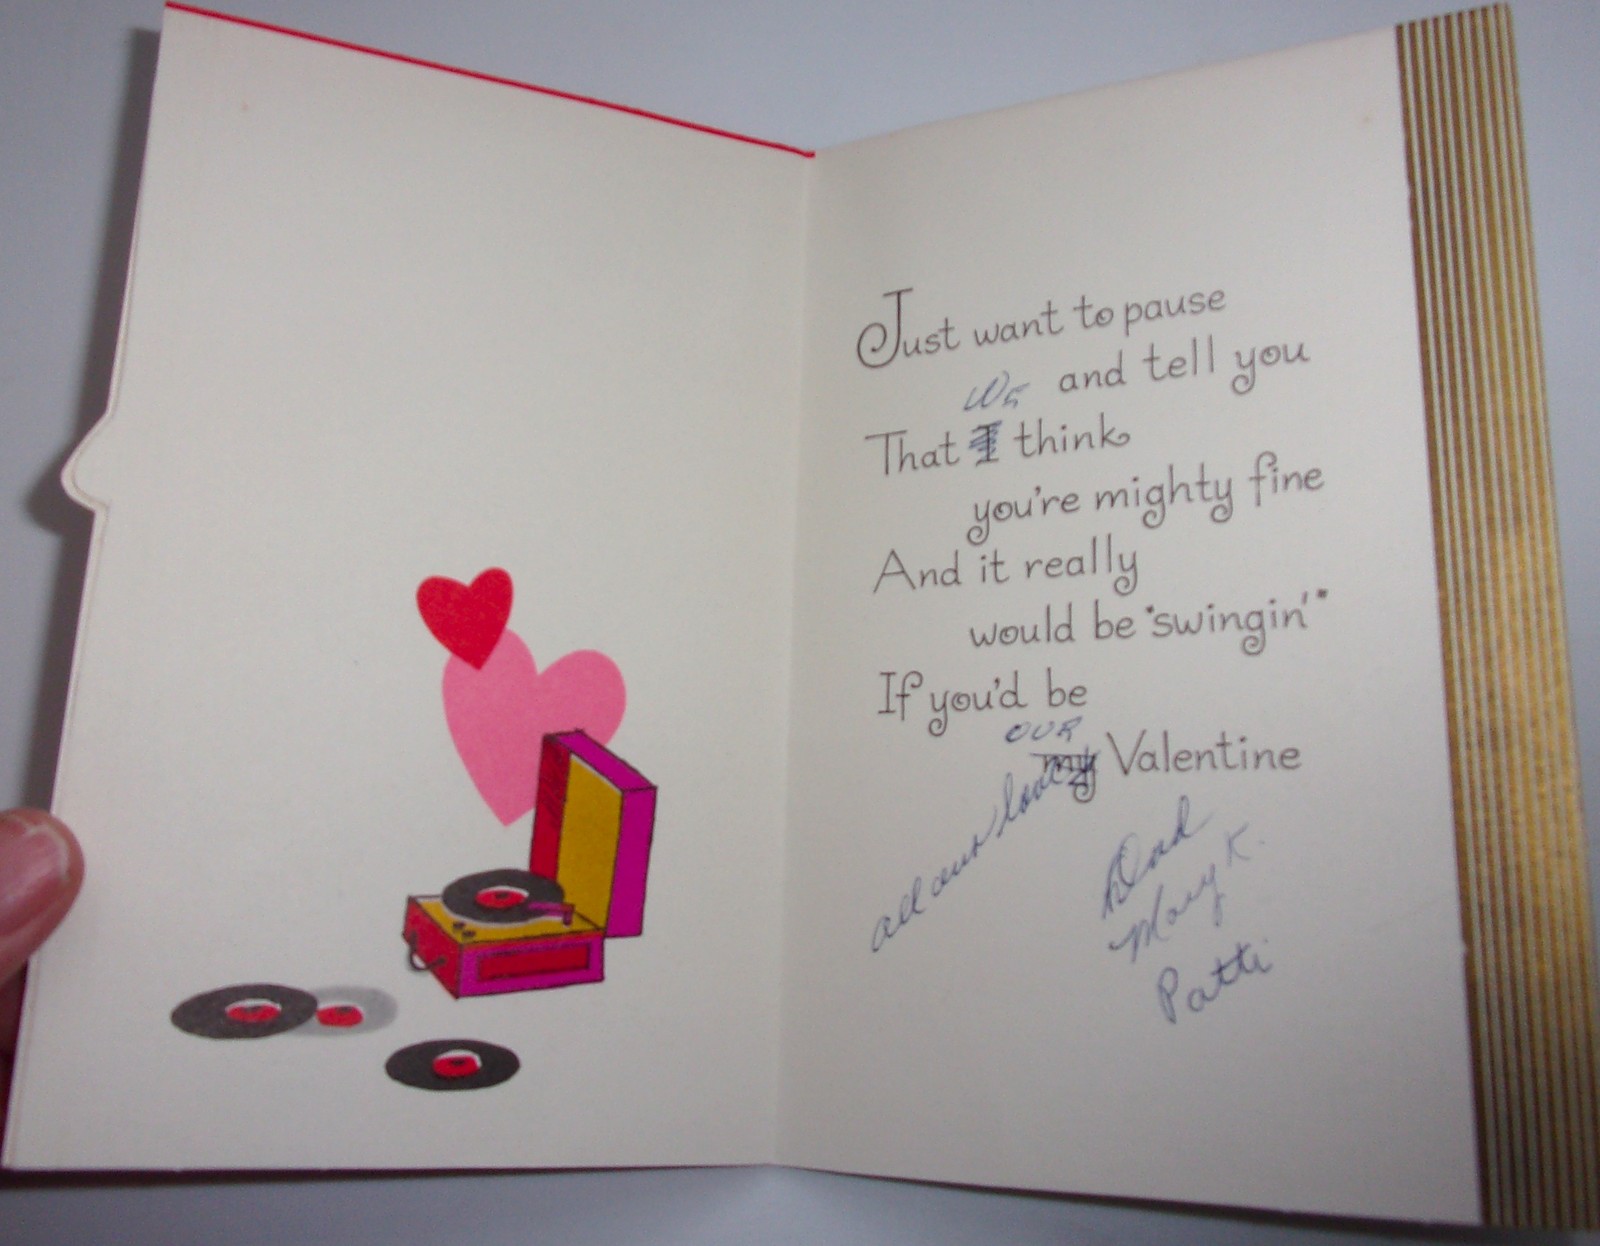 Just want to pause
and tell you
We
That I think
you're mighty fine
And it really
would be "swingin'"
If you'd be
OUR
my Valentine
all our love
Dad
Mary K.
Patti